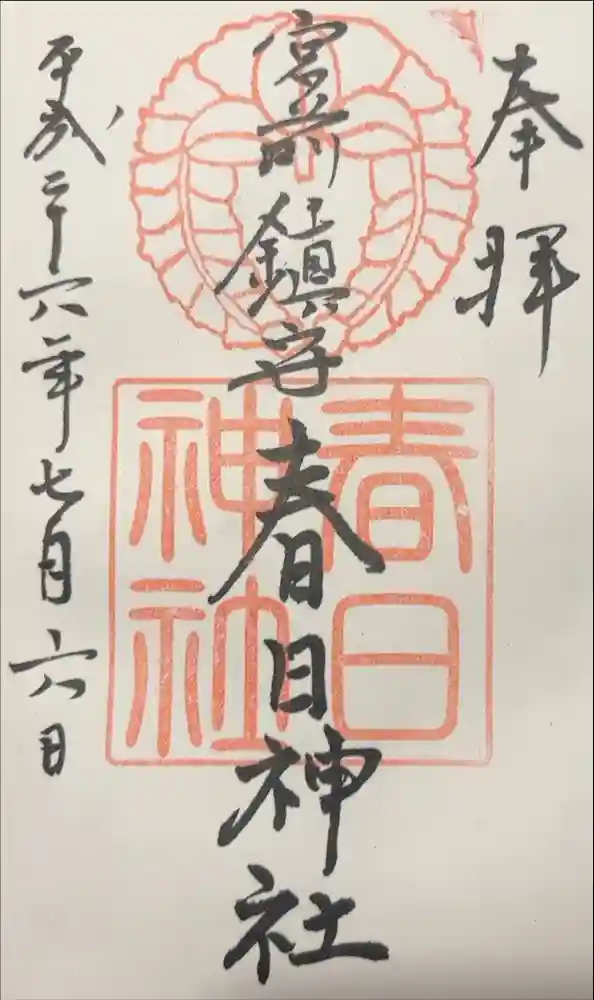 奉拝
宮前鎮守春日神社
春日神社
平成二十六年七月六日